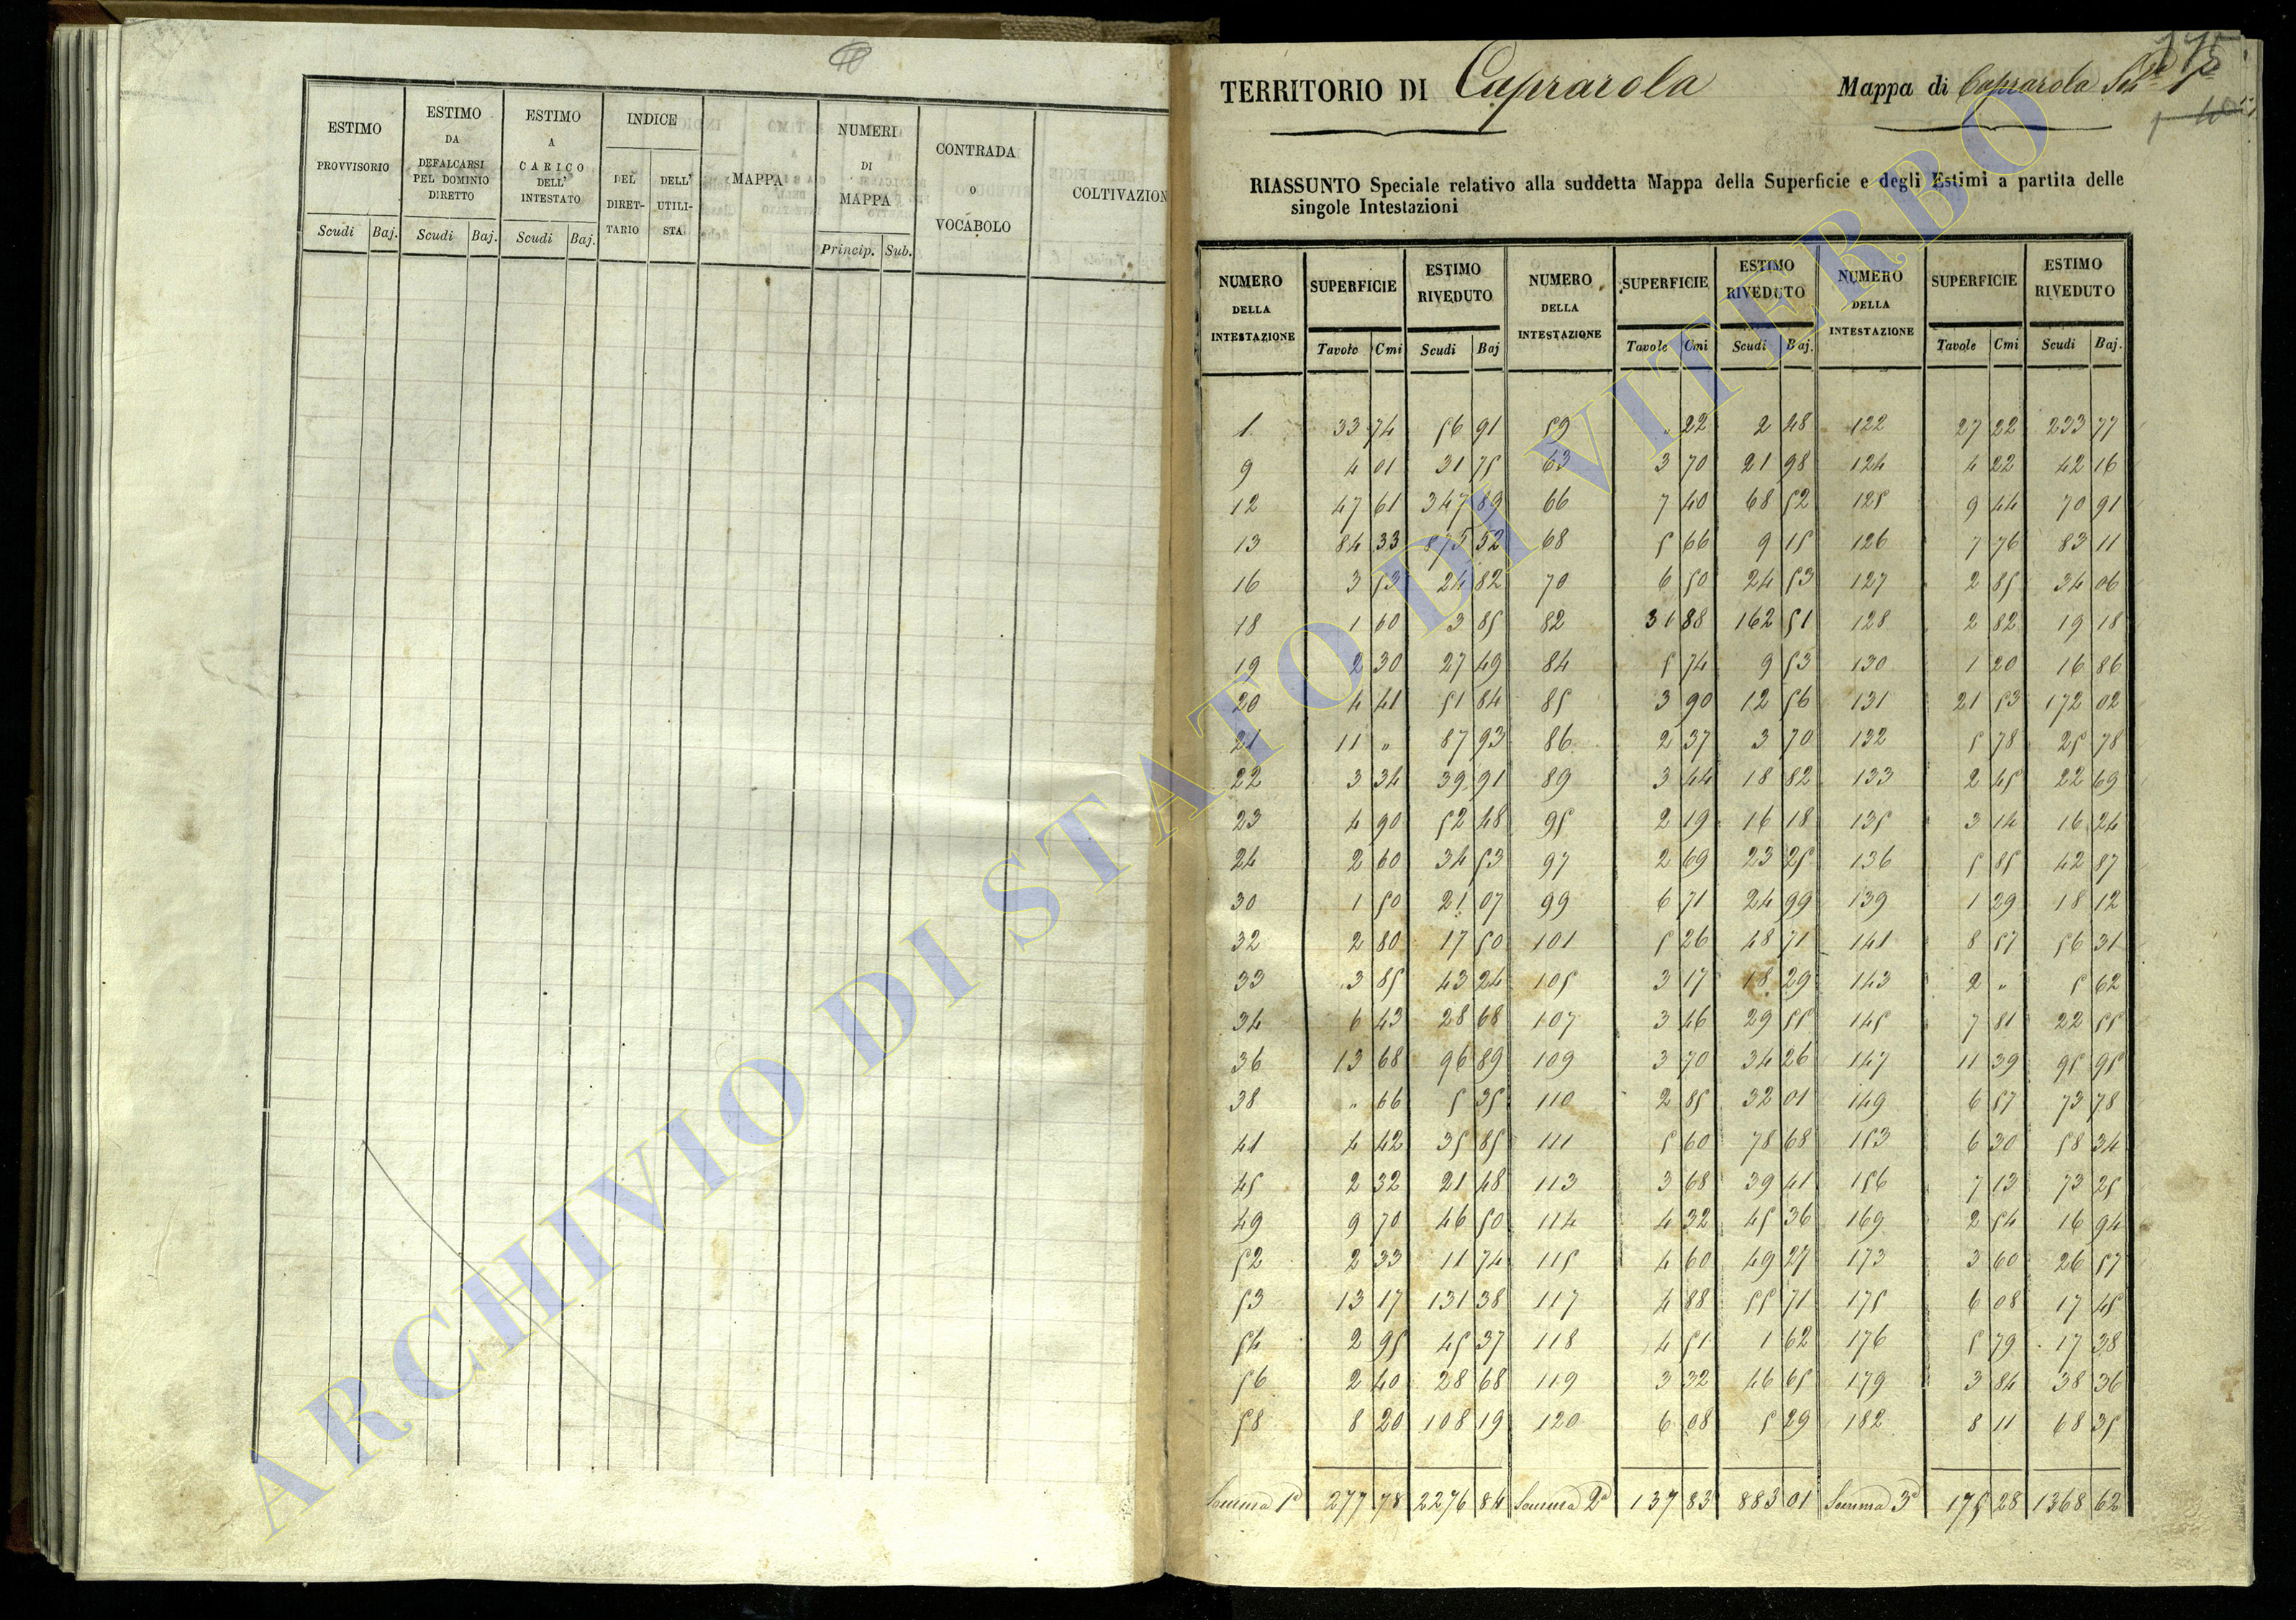 ESTIMO PROVVISORIO
ESTIMO DA DEFALCARSI PEL DOMINIO DIRETTO
ESTIMO A CARICO DELL' INTESTATO
INDICE
DEL DIRET-TARIO
DELL' UTILI-STA
MAPPA
NUMERI DI MAPPA
CONTRADA O VOCABOLO
COLTIVAZION
Scudi Baj. Scudi Baj. Scudi Baj. Princip. Sub.
TERRITORIO DI Caprarola Mappa di Caprarola
RIASSUNTO Speciale relativo alla suddetta Mappa della Superficie e degli Estimi a partita delle
singole Intestazioni
NUMERO DELLA INTESTAZIONE SUPERFICIE ESTIMO RIVEDUTO NUMERO DELLA INTESTAZIONE SUPERFICIE ESTIMO RIVEDUTO NUMERO DELLA INTESTAZIONE SUPERFICIE ESTIMO RIVEDUTO
Tavole Cmi Scudi Baj Tavole Cmi Scudi Baj. Tavole Cmi Scudi Baj.
1 33 74 56 91 59 " 22 2 48 122 27 22 233 77
9 4 01 31 75 63 3 70 21 98 124 4 22 42 16
12 47 61 347 89 66 7 40 68 52 125 9 44 70 91
13 84 33 875 52 68 5 66 9 15 126 7 76 83 11
16 3 53 24 82 70 6 50 24 53 127 2 85 34 06
18 1 60 3 85 82 31 88 162 51 128 2 82 19 18
19 2 30 27 49 84 5 74 9 53 130 1 20 16 86
20 4 41 51 84 85 3 90 12 56 131 21 53 172 02
21 11 " 87 93 86 2 37 3 70 132 5 78 25 78
22 3 34 39 91 89 3 44 18 82 133 2 45 22 69
23 4 90 52 48 95 2 19 16 18 135 3 14 16 24
24 2 60 34 53 97 2 69 23 25 136 5 85 42 87
30 1 50 21 07 99 6 71 24 99 139 1 29 18 12
32 2 80 17 50 101 5 26 48 71 141 8 57 56 31
33 3 85 43 24 105 3 17 18 29 143 2 " 5 62
34 6 43 28 68 107 3 46 29 55 145 7 81 22 55
36 13 68 96 89 109 3 70 34 26 147 11 39 95 95
38 " 66 5 35 110 2 85 32 01 149 6 57 73 78
41 4 42 35 85 111 5 60 78 68 153 6 30 58 34
45 2 32 21 48 113 3 68 39 41 156 7 13 73 25
49 9 70 46 50 114 4 32 45 36 169 2 54 16 94
52 2 33 11 74 115 4 60 49 27 173 3 60 26 57
53 13 17 131 38 117 4 88 55 71 175 6 08 17 45
54 2 95 45 37 118 4 51 1 62 176 5 79 17 38
56 2 40 28 68 119 3 32 46 65 179 3 84 38 36
58 8 20 108 19 120 6 08 5 29 182 8 11 68 35
Somma 1ª 277 78 2276 84 Somma 2ª 137 83 883 01 Somma 3ª 175 28 1368 62
ARCHIVIO DI STATO DI VITERBO